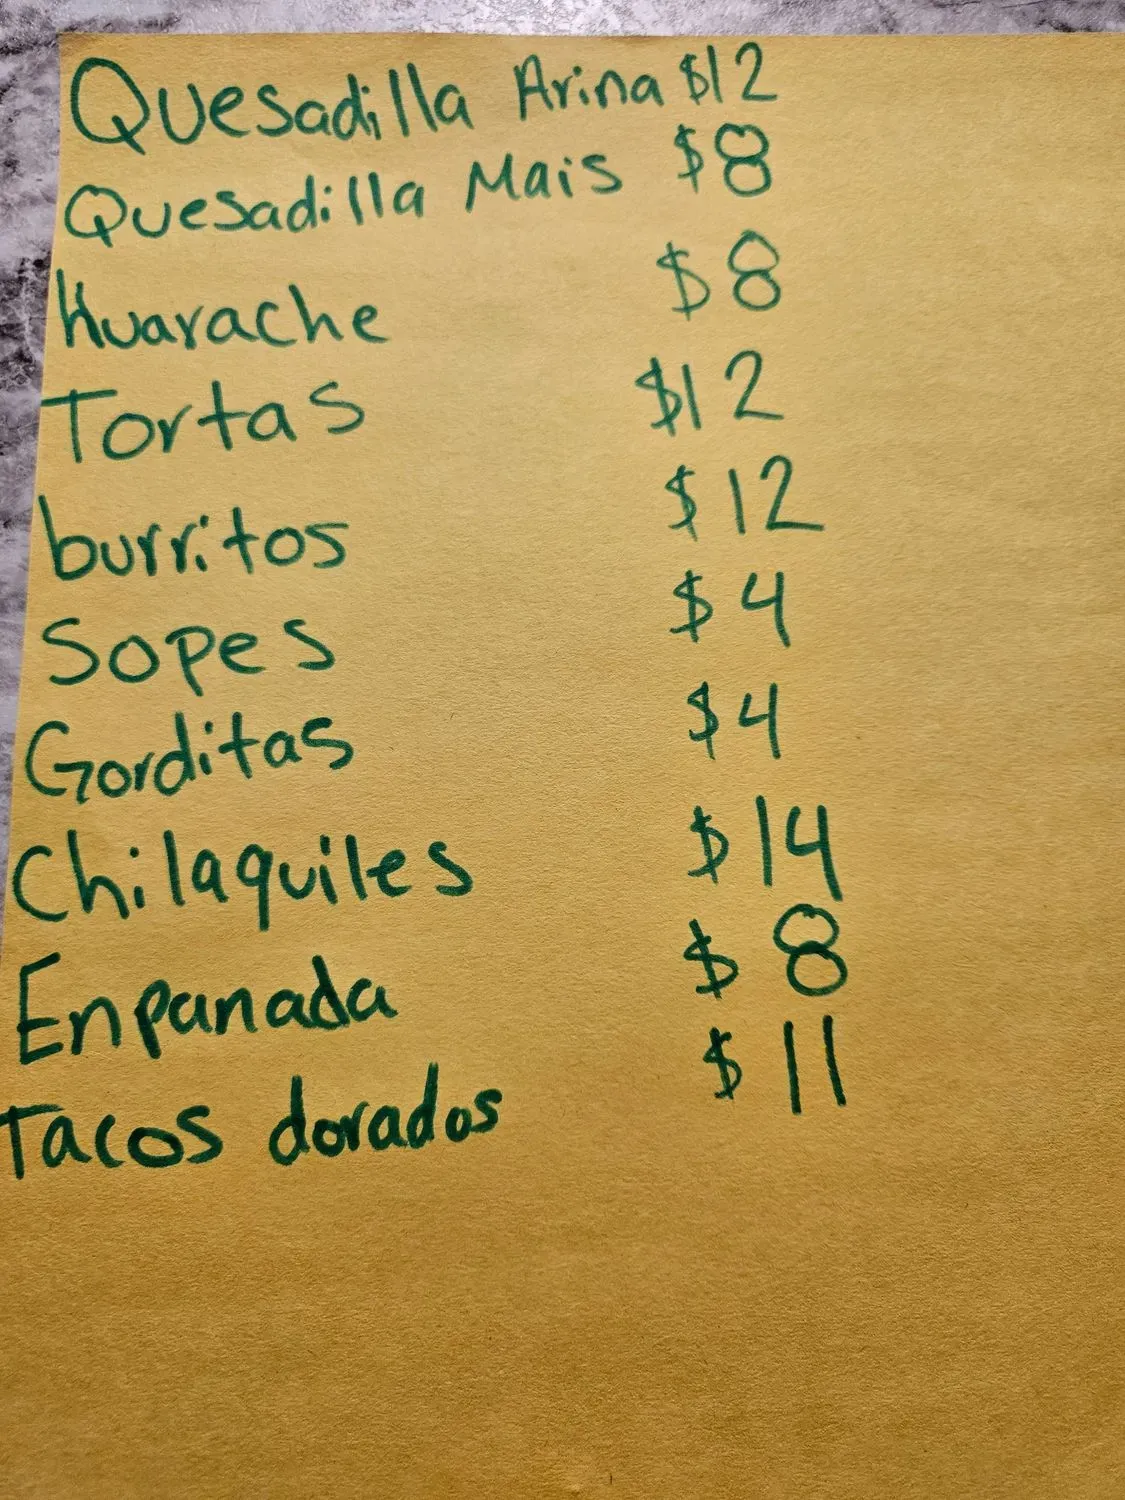 Quesadilla Arina $12
Quesadilla Mais $8
Huarache $8
Tortas $12
burritos $12
Sopes $4
Gorditas $4
Chilaquiles $14
Enpanada $8
Tacos dorados $11